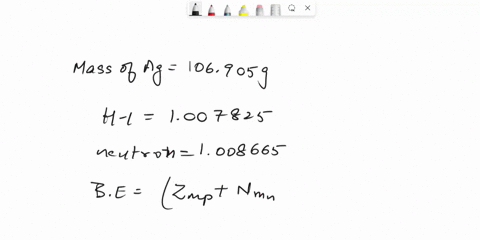 Mass of Ag = 106.905g
H-1 = 1.007825
neutron = 1.008665
B.E = (Zmp + Nmn